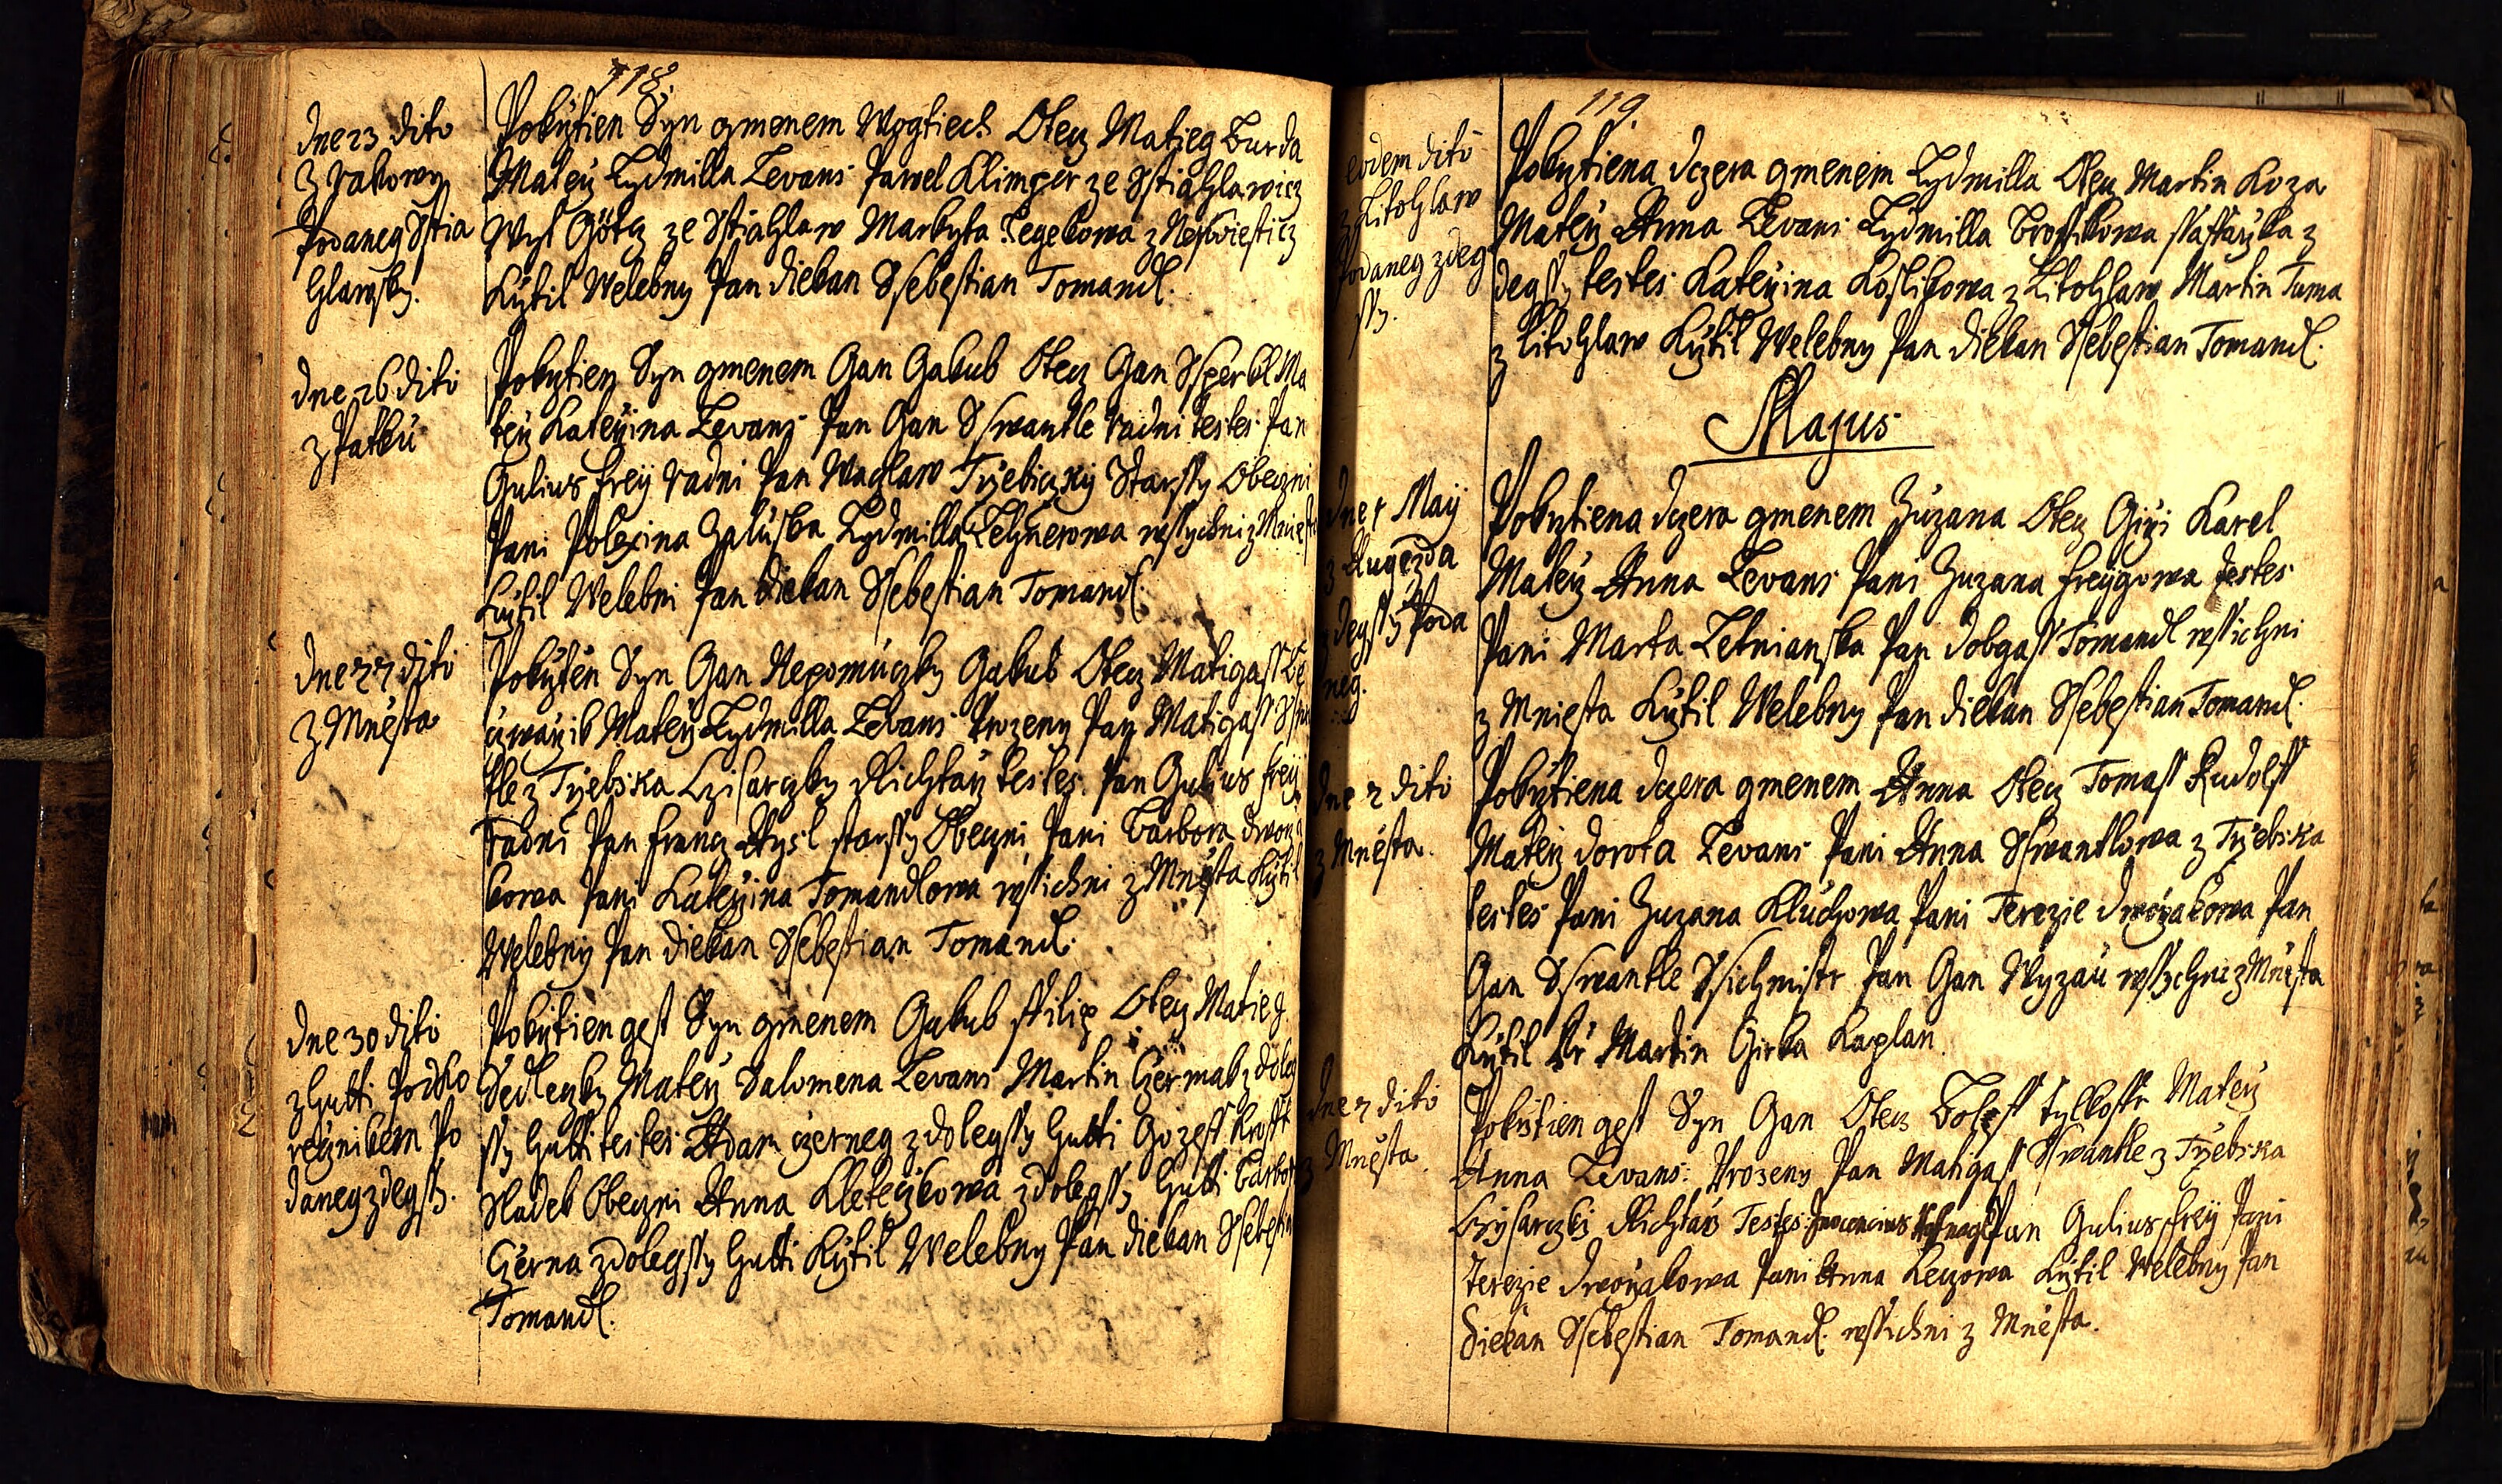 118.
dne 23 dito
z Rakowy
Podaneg Sstia
hlawsky.
Pokrztien Syn gmenem Wogtiech Otecz Matieg Burda
Materz Lydmilla Levans Pawel Klimper ze Sstiahlawicz
ze Sstiahlaw Markyta z Neswiesticz
Krztil Welebny Pan diekan Ssebestian Tomandl.
dne 26 dito
z Patku
Pokrztien Syn gmenem Gan Gakub Otecz Gan Ssperkl Ma
terz Katerzina Levans Pan Gan Sswantle radni testes Pan
Gulius Frey radni Pan Waczlaw Trzebiczky Starssy Obeczni
Pani Polexina Zaluska Lydmilla wssychni z Mniesta
Krztil Welebni Pan diekan Ssebestian Tomandl.
dne 27 dito
z Mniesta
Pokrztien Syn Gan Nepomuczky Gakub Otecz Matigass
Materz Lydmilla Levans Urozeny Pan Matigass
tle z Trzebska Czisarzky Richtarz testes Pan Gulius Frey
radni Pan Francz starssy Obeczni Pani Barbora dworza
kowa Pani Katerzina Tomandlowa wssichni z Mniesta Krztil
Welebny Pan diekan Ssebestian Tomandl.
dne 30 dito
z Hutti Podko
recznikem Po
daneg zdegssy.
Pokrztien gest Syn gmenem Gakub Ffilip Otecz Matieg
Sedleczky Materz Salomena Levans Martin Czermak z doleg
ssy Hutti testes Adam czerneg z dolegssy Hutti Gozeff
Sladek Obeczni Anna Kleteczkowa z dolegssy Hutti Barbora
Czerna z dolegssy Hutti Krztil Welebny Pan diekan Ssebestian
Tomandl.
119.
eodem dito
z Litohlaw
Podaneg zdeg
ssy.
Pokrztiena dczera gmenem Lydmilla Otecz Martin Koza
Materz Anna Levans Lydmilla ssaffarzka z
degssy testes Katerzina Koslikowa z Litohlaw Martin Tuma
z Litohlaw Krztil Welebny Pan diekan Ssebestian Tomandl.
Majus
dne 1 May
z Augezda
zdegssy Poda
neg.
Pokrztiena dczera gmenem Zuzana Otecz Girzi Karel
Materz Anna Levans Pani Zuzana Freygowa testes
Pani Marta Letnianska Pan Tobgass Tomandl wssichni
z Mniesta Krztil Welebny Pan diekan Ssebestian Tomandl.
dne 2 dito
z Mniesta.
Pokrztiena dczera gmenem Anna Otecz Tomass Rudolff
Materz dorota Levans Pani Anna Sswantlowa z Trzebska
testes Pani Zuzana Kluchowa Pani Terezie dworzakowa Pan
Gan Sswantle Ssichmistr Pan Gan Wyzau wssychni z Mniesta
Krztil Kr Martin Girka Kaplan.
dne 7 dito
z Mniesta.
Pokrztien gest Syn Gan Otecz Materz
Anna Levans: Urozeny Pan Matigass Sswantle z Trzebska
Czysarzki Richtarz Testes: Pan Gulius Frey Pani
Terezie dworzakowa Pani Anna Krztil Welebny Pan
diekan Ssebestian Tomandl. wssichni z Mniesta.